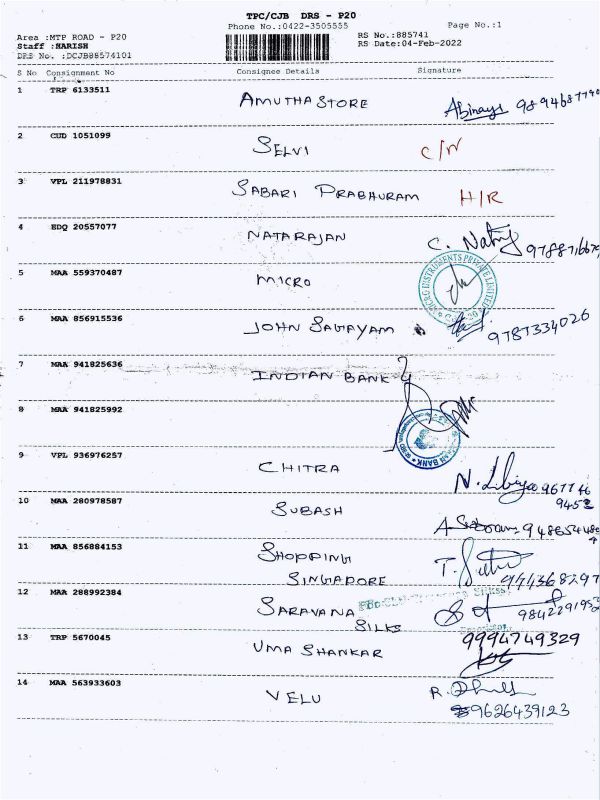 TPC/CJB DRS - P20
Phone No.:0422-3505555
Page No.:1
Area :MTP ROAD - P20
RS No.:885741
Staff :HARISH
RS Date:04-Feb-2022
DRS No. :DCJB88574101
S No Consignment No Consignee Details Signature
1 TRP 6133511 AMUTHA STORE Abinaya
2 CUD 1051099 SELVI C/N
3 VPL 211978831 SABARI PRABHURAM H/R
4 EDQ 20557077 NATARAJAN
5 MAA 559370487 MICRO
6 MAA 856915536 JOHN SAGAYAM 9787334026
7 MAA 941825636 INDIAN BANK
8 MAA 941825992
9 VPL 936976257 CHITRA
10 MAA 280978587 SUBASH
11 MAA 856884153 SHOPPING
SINGAPORE
12 MAA 288992384 SARAVANA
SILKS 9842291952
13 TRP 5670045 UMA SHANKAR 9994749329
14 MAA 563933603 VELU
9626439123